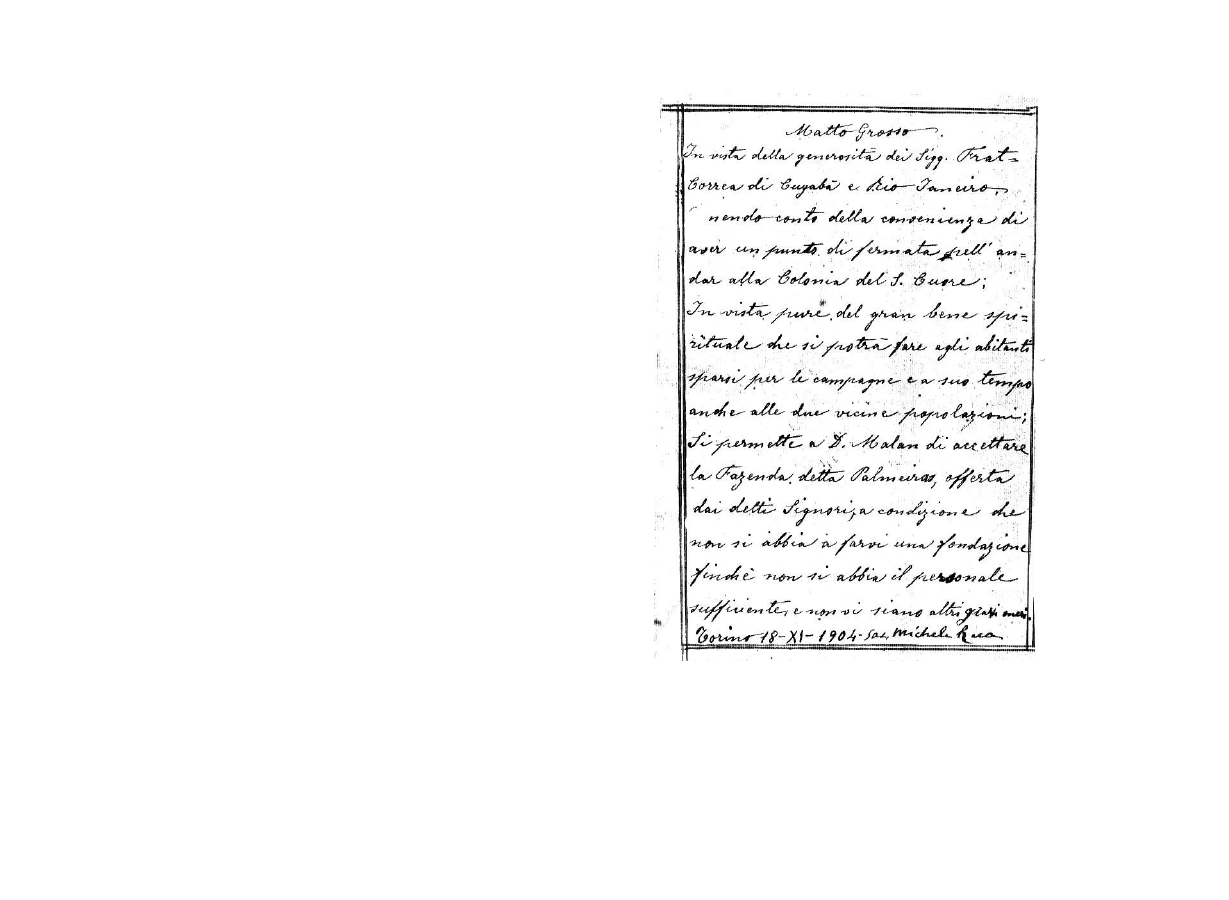 Matto Grosso.
In vista della generosità dei Sigg. Frat=
Correa di Cuyabà e Rio Janeiro;
nendo conto della convenienza di
aver un punto di fermata pell' an=
dar alla Colonia del S. Cuore;
In vista pure del gran bene spi=
rituale che si potrà fare agli abitanti
sparsi per le campagne e a suo tempo
anche alle due vicine popolazioni;
Si permette a D. Malan di accettare
la Fazenda detta Palmeiras, offerta
dai detti Signori, a condizione che
non si abbia a farvi una fondazione
finchè non si abbia il personale
sufficiente, e non vi siano altri gravi oneri.
Torino 18-XI-1904. Sac. Michele Rua